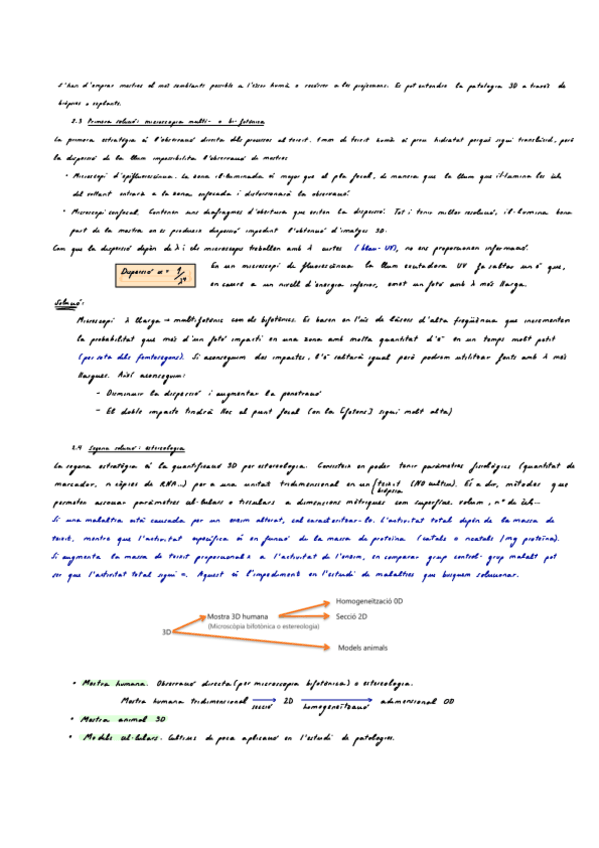 S'han d'emprar mostres el més semblants possible a l'ésser humà o recórrer a les projeccions. Es pot entendre la patologia 3D a través de
biòpsies o explants.
2.3 Primera solució: microscòpia multi- o bi-fotònica
La primera estratègia és l'observació directa dels processos al teixit. 1mm de teixit humà és prou hidratat perquè sigui translúcid, però
la dispersió de la llum impossibilita l'observació de mostres
• Microscopi d'epifluorescència. La zona il·luminada és major que el pla focal, de manera que la llum que il·lumina les cèls
del voltant entrarà a la zona enfocada i distorsionarà la observació.
• Microscopi confocal. Contenen uns diafragmes d'obertura que eviten la dispersió. Tot i tenir millor resolució, il·lumina bona
part de la mostra on es produeix dispersió impedint l'obtenció d'imatges 3D.
Com que la dispersió depèn de λ i els microscopis treballen amb λ curtes (blau-UV), no ens proporcionen informació.
Dispersió α 1/λ⁴
En un microscopi de fluorescència la llum excitadora UV fa saltar un ē que,
en caure a un nivell d'energia inferior, emet un fotó amb λ més llarga.
Solució:
Microscopi λ llarga → multifotònic com els bifotònics. Es basen en l'ús de làsers d'alta freqüència que incrementen
la probabilitat que més d'un fotó impacti en una zona amb molta quantitat d'ē en un temps molt petit
(per sota dels femtosegons). Si aconseguim dos impactes, l'ē saltarà igual però podrem utilitzar fonts amb λ més
llargues. Així aconseguim:
- Disminuir la dispersió i augmentar la penetració
- El doble impacte tindrà lloc al punt focal (on la [fotons] sigui molt alta)
2.4 Segona solució: estereologia
La segona estratègia és la quantificació 3D per estereologia. Consisteix en poder tenir paràmetres fisiològics (quantitat de
marcador, n còpies de RNA...) per a una unitat tridimensional en un [teixit biòpsia (NO cultiu). És a dir, mètodes que
permeten associar paràmetres cel·lulars o tissulars a dimensions mètriques com superfície, volum, nº de cèl...
Si una malaltia està causada per un enzim alterat, cal caracteritzar-lo. L'activitat total depèn de la massa de
teixit, mentre que l'activitat específica és en funció de la massa de proteïna (catals o ncatals /mg proteïna).
Si augmenta la massa de teixit proporcional a l'activitat de l'enzim, en comparar grup control- grup malalt pot
ser que l'activitat total sigui =. Aquest és l'impediment en l'estudi de malalties que busquem solucionar.
Homogeneització 0D
Mostra 3D humana
Secció 2D
(Microscòpia bifotònica o estereologia)
3D
Models animals
• Mostra humana. Observació directa (per microscòpia bifotònica) o estereologia.
Mostra humana tridimensional → secció 2D → homogeneïtzació adimensional 0D
• Mostra animal 3D
• Models cel·lulars. Cultius de poca aplicació en l'estudi de patologies.